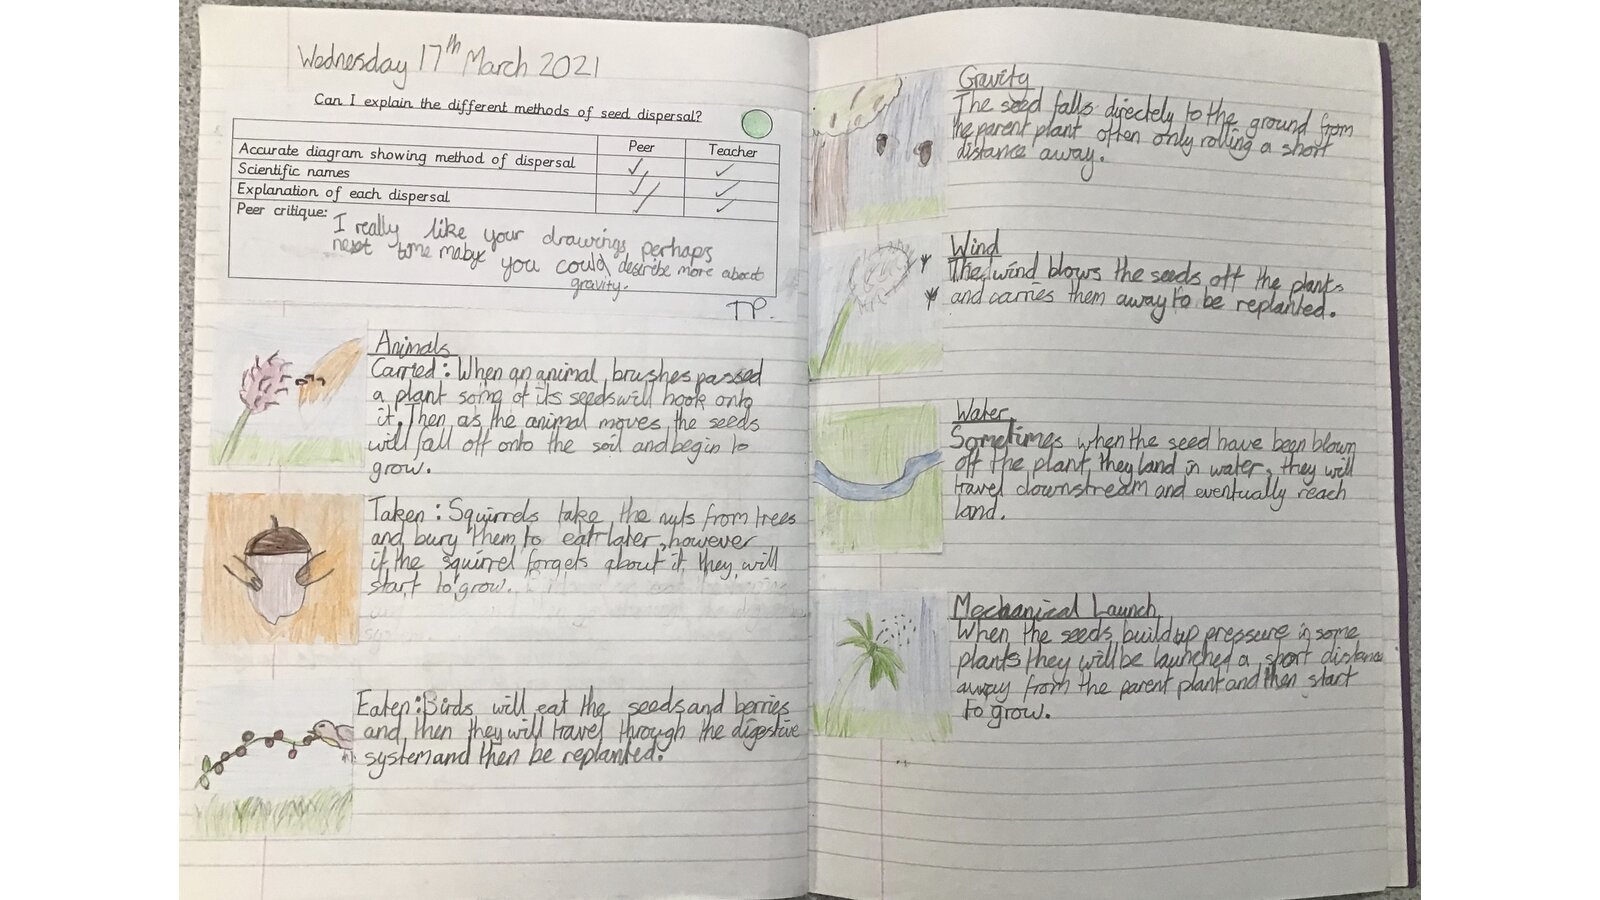 Wednesday 17th March 2021
Can I explain the different methods of seed dispersal?
Peer Teacher
Accurate diagram showing method of dispersal
Scientific names
Explanation of each dispersal
Peer critique: I really like your drawings perhaps
next time mabye you could describe more about
gravity.
TP.
Animals
Carried: When an animal brushes passed
a plant some of its seeds will hook onto
it. Then as the animal moves the seeds
will fall off onto the soil and begin to
grow.
Taken: Squirrels take the nuts from trees
and bury them to eat later, however
if the squirrel forgets about it they will
start to grow.
Eaten: Birds will eat the seeds and berries
and then they will travel through the digestive
system and then be replanted.
Gravity
The seed falls directely to the ground from
the parent plant often only rolling a short
distance away.
Wind
The wind blows the seeds off the plants
and carries them away to be replanted.
Water
Sometimes when the seed have been blown
off the plant, they land in water, they will
travel downstream and eventually reach
land.
Mechanical Launch
When the seeds build up pressure in some
plants they will be launched a short distance
away from the parent plant and then start
to grow.